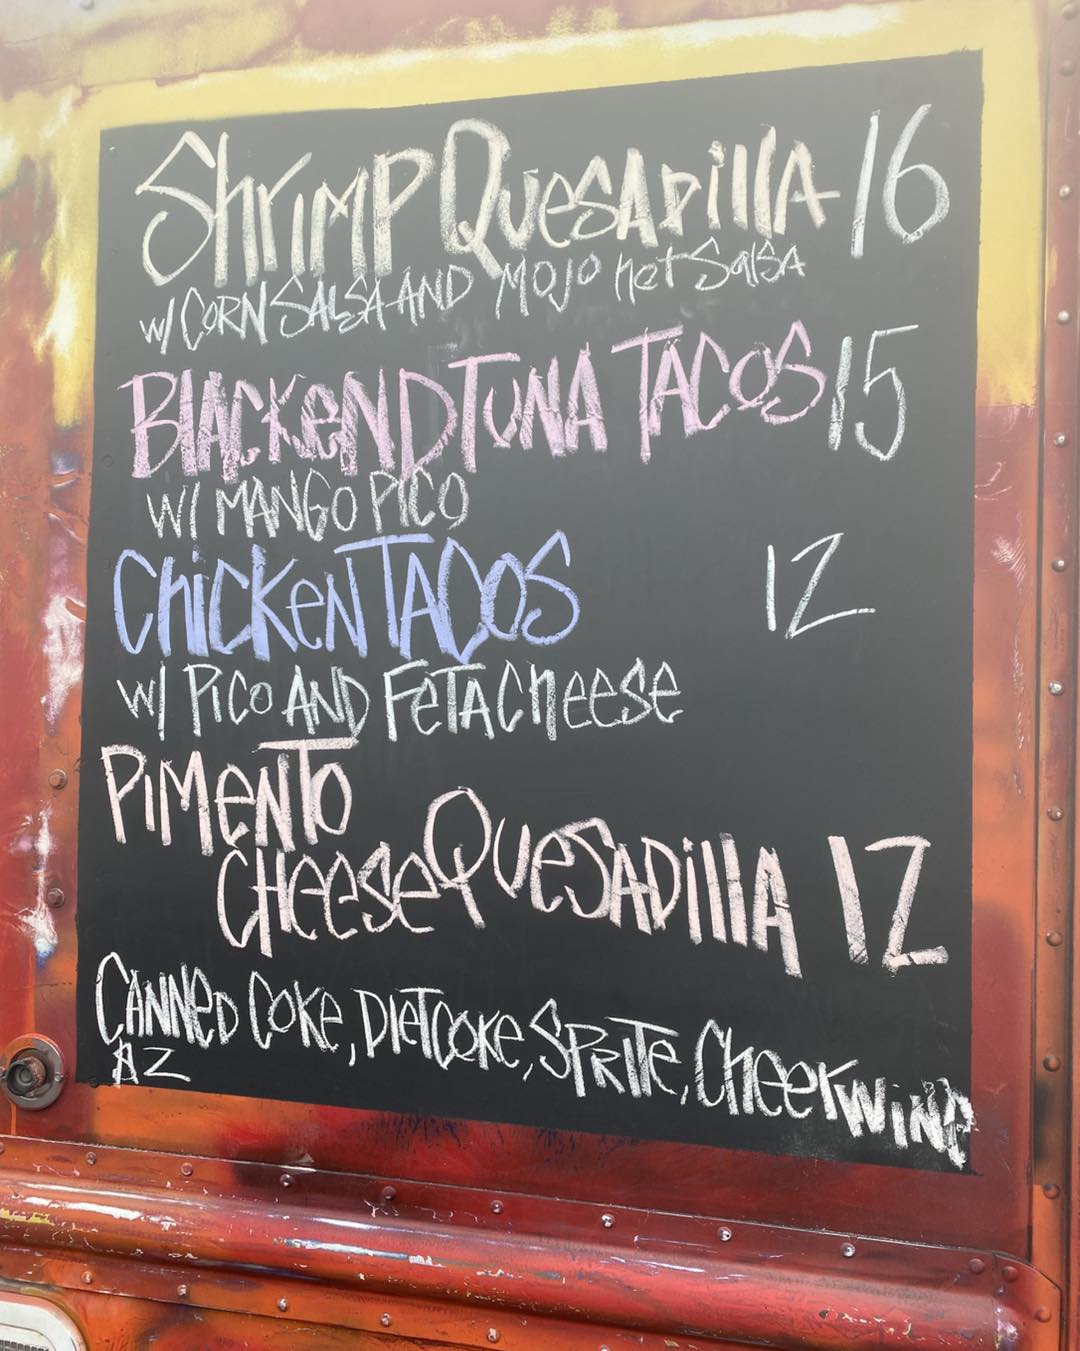 Shrimp Quesadilla 16
w/ Corn Salsa and Mojo Hot Salsa
Blackend Tuna Tacos 15
w/ Mango Pico
Chicken Tacos 12
w/ Pico and Feta Cheese
Pimento
Cheese Quesadilla 12
Canned Coke, Diet Coke, Sprite, Cheerwine
AZ